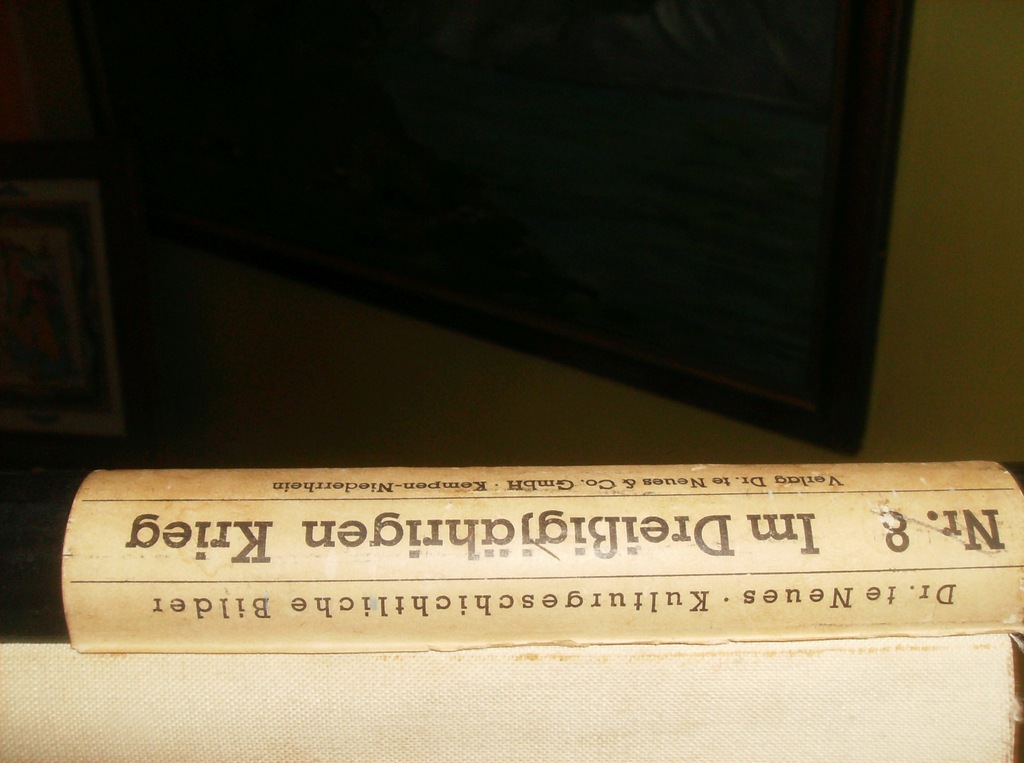 Dr. te Neues · Kulturgeschichtliche Bilder
Nr. 8 Im Dreißigjährigen Krieg
Verlag Dr. te Neues & Co. GmbH · Kempen-Niederrhein